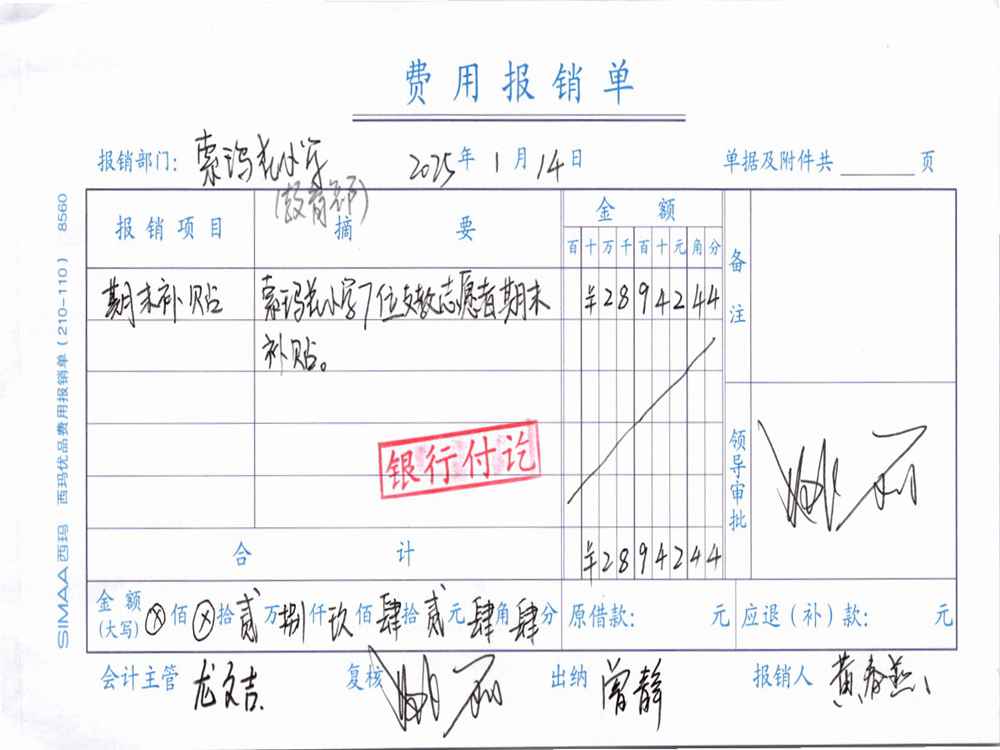 费用报销单
报销部门：索玛花小学 2025年1月14日 单据及附件共 页
(教育部)
报销项目 摘要 金额 备注
百十万千百十元角分
期末补贴 索玛花小学7位支教志愿者期末 ¥2894244
补贴。
银行付讫
领导审批
合计 ¥2894244
金额(大写) ⊗佰⊗拾贰万捌仟玖佰肆拾贰元肆角肆分 原借款： 元 应退（补）款： 元
会计主管 龙文吉 复核 出纳 曾静 报销人 黄春燕
SIMAA西玛 西玛优品费用报销单（210-110） 8560